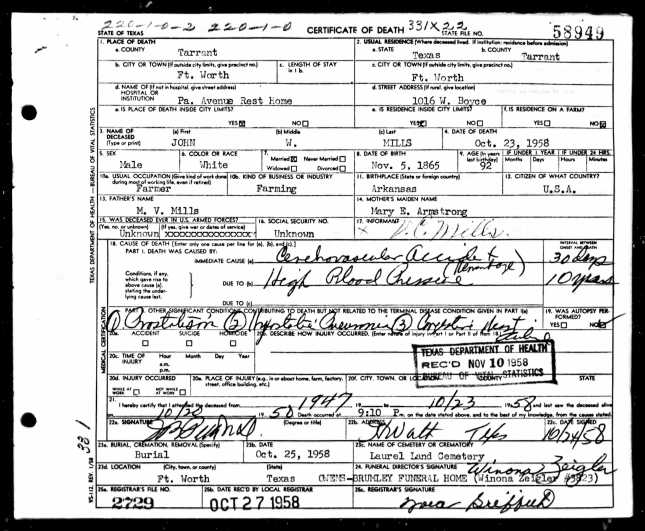 220-1-0-2 220-1-0
STATE OF TEXAS
CERTIFICATE OF DEATH 331X22
STATE FILE NO. 58949
1. PLACE OF DEATH
a. COUNTY
Tarrant
2. USUAL RESIDENCE (Where deceased lived. If institution: residence before admission)
a. STATE
Texas
b. COUNTY
Tarrant
b. CITY OR TOWN (If outside city limits, give precinct no.)
Ft. Worth
c. LENGTH OF STAY
in 1 b.
c. CITY OR TOWN (If outside city limits, give precinct no.)
Ft. Worth
d. NAME OF (If not in hospital, give street address)
HOSPITAL OR
INSTITUTION
Pa. Avenue Rest Home
d. STREET ADDRESS (If rural, give location)
1016 W. Boyce
e. IS PLACE OF DEATH INSIDE CITY LIMITS?
YES NO
e. IS RESIDENCE INSIDE CITY LIMITS?
YES NO
f. IS RESIDENCE ON A FARM?
YES NO
3. NAME OF
DECEASED
(Type or print)
(a) First
JOHN
(b) Middle
W.
(c) Last
MILLS
4. DATE OF DEATH
Oct. 23, 1958
5. SEX
Male
6. COLOR OR RACE
White
7.
Married Never Married
Widowed Divorced
8. DATE OF BIRTH
Nov. 5, 1865
9. AGE (In years
last birthday)
92
IF UNDER 1 YEAR
Months Days
IF UNDER 24 HRS.
Hours Minutes
10a. USUAL OCCUPATION (Give kind of work done
during most of working life, even if retired)
Farmer
10b. KIND OF BUSINESS OR INDUSTRY
Farming
11. BIRTHPLACE (State or foreign country)
Arkansas
12. CITIZEN OF WHAT COUNTRY?
U.S.A.
13. FATHER'S NAME
M. V. Mills
14. MOTHER'S MAIDEN NAME
Mary E. Armstrong
15. WAS DECEASED EVER IN U.S. ARMED FORCES?
(Yes, no, or unknown) (If yes, give war or dates of service)
Unknown xxxxxxxxxxxxxxx
16. SOCIAL SECURITY NO.
Unknown
17. INFORMANT
Mills
18. CAUSE OF DEATH [Enter only one cause per line for (a), (b), and (c).]
PART I. DEATH WAS CAUSED BY:
IMMEDIATE CAUSE (a) Cerebrovascular Accident
(Hemorrhage)
INTERVAL BETWEEN
ONSET AND DEATH
30 days
Conditions, if any,
which gave rise to
above cause (a),
stating the under-
lying cause last.
DUE TO (b) High Blood Pressure
10 years
DUE TO (c)
PART II. OTHER SIGNIFICANT CONDITIONS CONTRIBUTING TO DEATH BUT NOT RELATED TO THE TERMINAL DISEASE CONDITION GIVEN IN PART I(a)
(1) Prostatism (2) Hypostatic Pneumonia (3) Congestive Heart
19. WAS AUTOPSY PER-
FORMED?
YES NO
20a.
ACCIDENT SUICIDE HOMICIDE
20b. DESCRIBE HOW INJURY OCCURRED. (Enter nature of injury in Part I or Part II of item 18.)
20c. TIME OF
INJURY
Hour Month Day Year
a.m.
p.m.
TEXAS DEPARTMENT OF HEALTH
REC'D NOV 10 1958
BUREAU OF VITAL STATISTICS
20d. INJURY OCCURRED
WHILE AT
WORK
NOT WHILE
AT WORK
20e. PLACE OF INJURY (e.g., in or about home, farm, factory,
street, office building, etc.)
20f. CITY, TOWN, OR LOCATION
COUNTY
STATE
21.
I hereby certify that I attended the deceased from 1947 10/23 1958 and last saw the deceased alive
on 10/20 1958 Death occurred at 9:10 P. m. on the date stated above; and to the best of my knowledge, from the causes stated.
22a. SIGNATURE
(Degree or title)
22b. ADDRESS
Ft Worth Tex
22c. DATE SIGNED
10/24/58
23a. BURIAL, CREMATION, REMOVAL (Specify)
Burial
23b. DATE
Oct. 25, 1958
23c. NAME OF CEMETERY OR CREMATORY
Laurel Land Cemetery
23d. LOCATION
(City, town, or county)
Ft. Worth
(State)
Texas
24. FUNERAL DIRECTOR'S SIGNATURE
Winona Zeigler
OWENS-BRUMLEY FUNERAL HOME (Winona Zeigler #3823)
25a. REGISTRAR'S FILE NO.
2729
25b. DATE REC'D BY LOCAL REGISTRAR
OCT 27 1958
25c. REGISTRAR'S SIGNATURE
TEXAS DEPARTMENT OF HEALTH—BUREAU OF VITAL STATISTICS
MEDICAL CERTIFICATION
VS-112 REV. 1/58
331